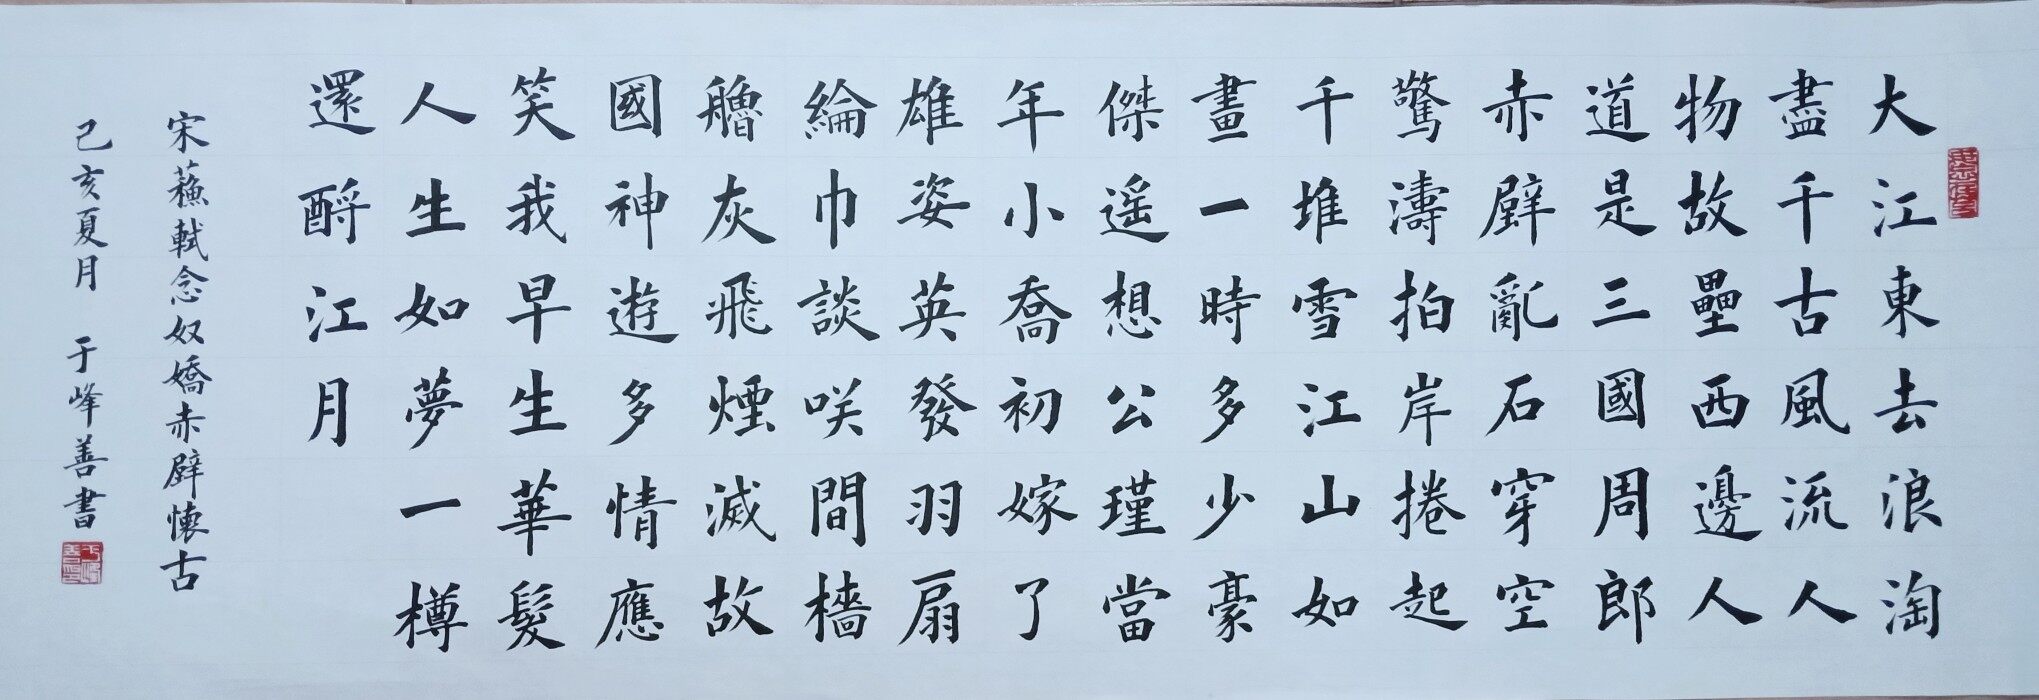 大江東去浪淘
盡千古風流人
物故壘西邊人
道是三國周郎
赤壁亂石穿空
驚濤拍岸捲起
千堆雪江山如
畫一時多少豪
傑遥想公瑾當
年小喬初嫁了
雄姿英發羽扇
綸巾談咲間檣
艣灰飛煙滅故
國神遊多情應
笑我早生華髮
人生如夢一樽
還酹江月
宋蘓軾念奴嬌赤壁懷古
己亥夏月 于峰善書